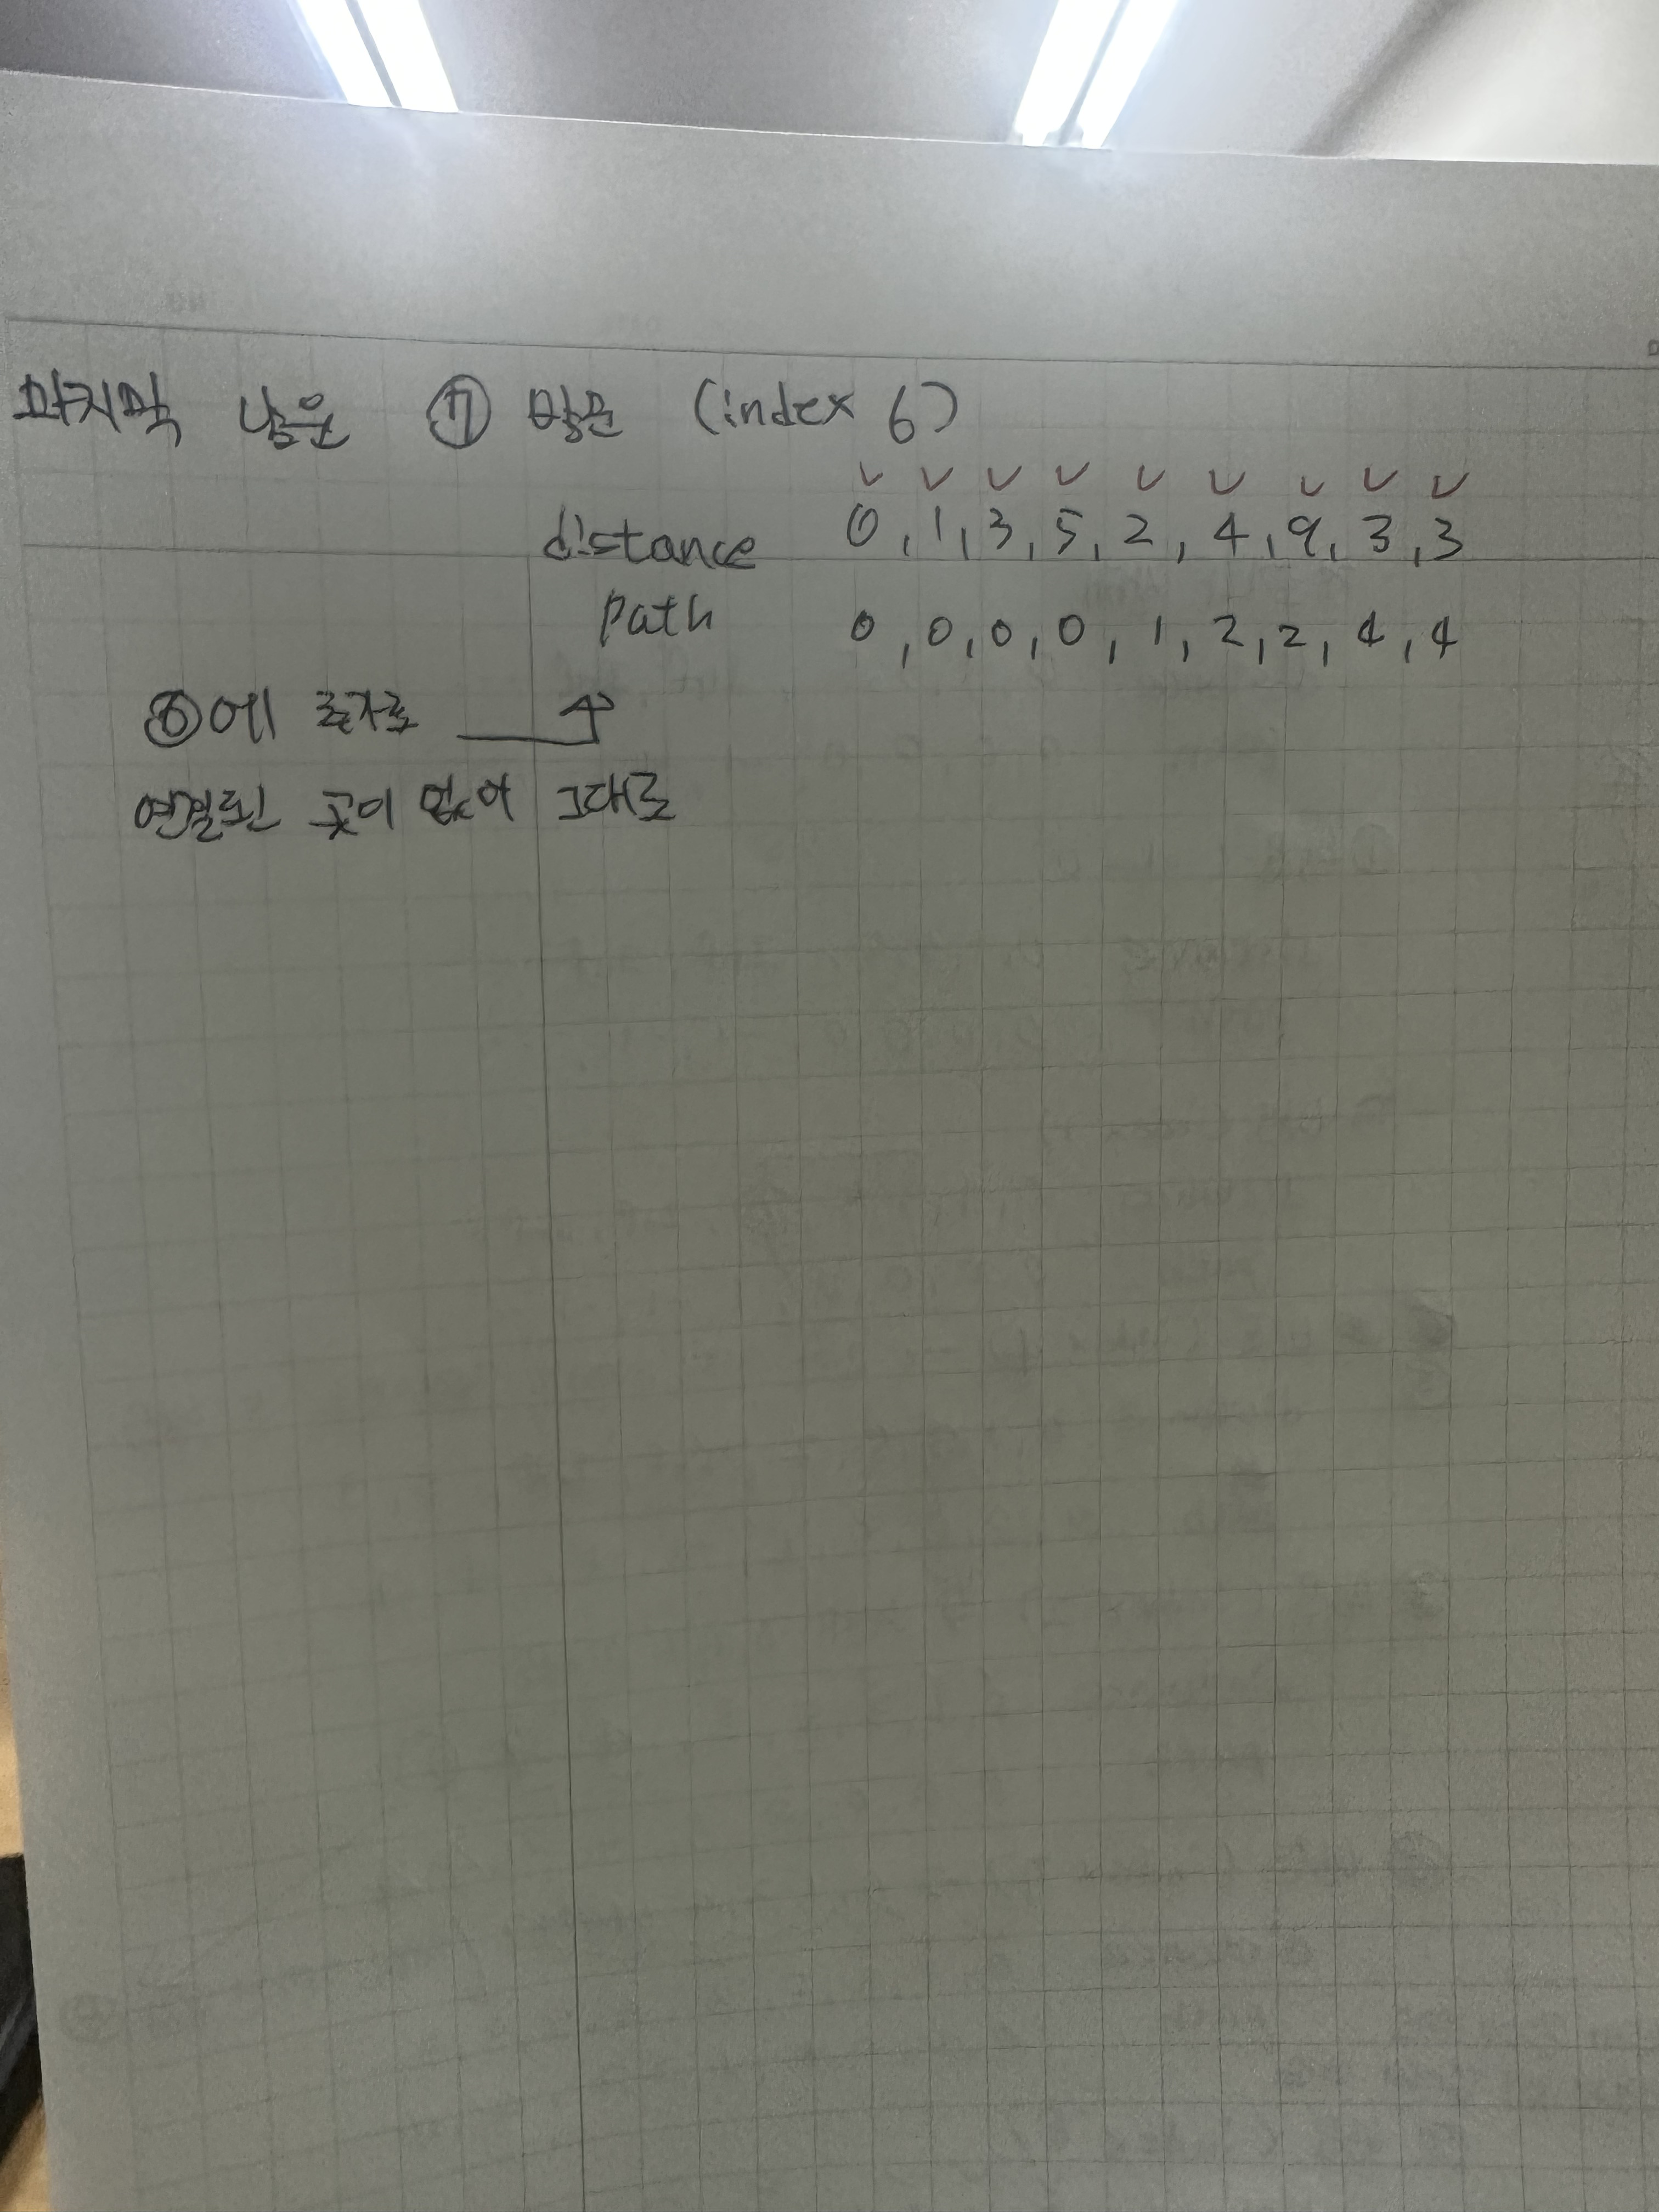 마지막 남은 ⑦ 방문 (index 6)
distance 0, 1, 3, 5, 2, 4, 9, 3, 3
path 0, 0, 0, 0, 1, 2, 2, 4, 4
⑥에 추가로
연결된 곳이 없어 그대로